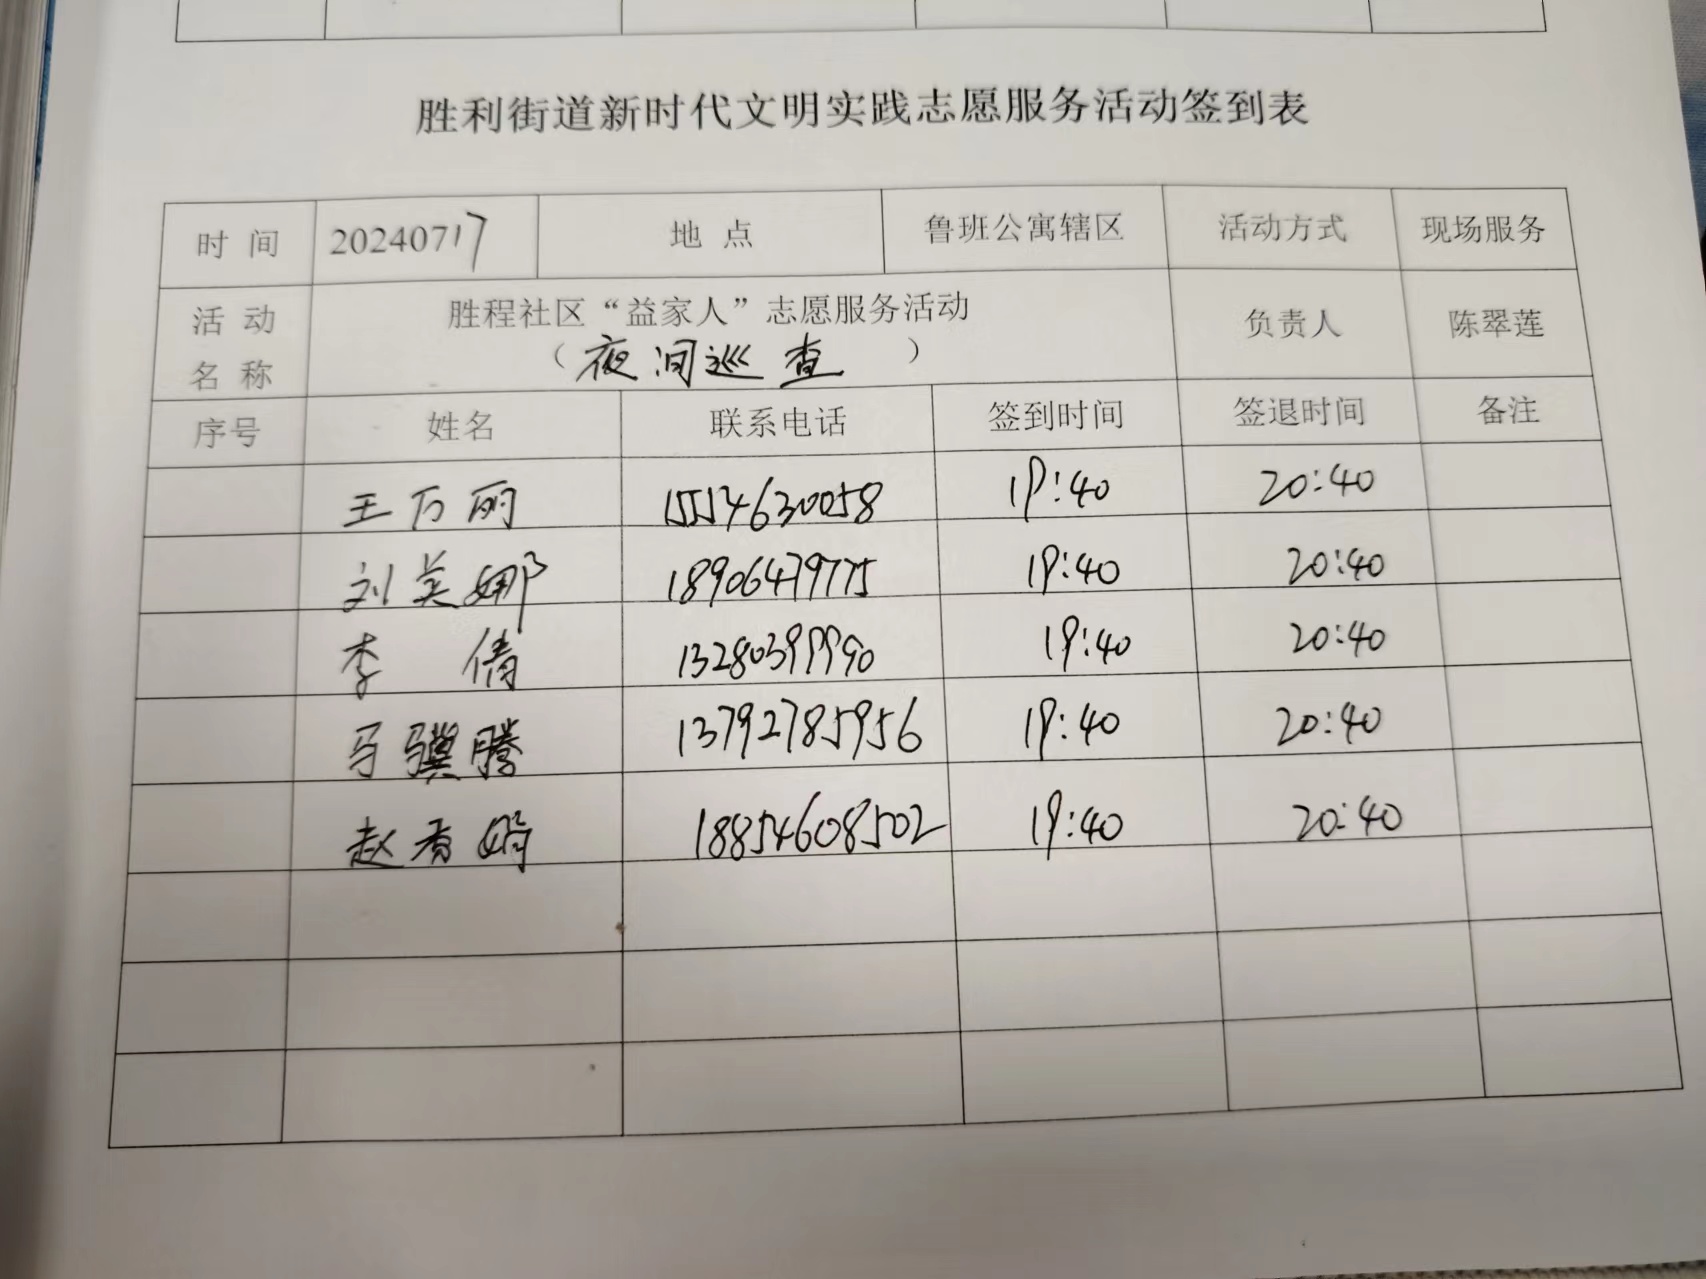 胜利街道新时代文明实践志愿服务活动签到表
时 间 20240717 地 点 鲁班公寓辖区 活动方式 现场服务
活 动 名 称 胜程社区“益家人”志愿服务活动 负责人 陈翠莲
（夜间巡查）
序号 姓名 联系电话 签到时间 签退时间 备注
王万丽 15514630058 19:40 20:40
刘英娜 18906479775 19:40 20:40
李倩 13280399990 19:40 20:40
马骥腾 13792785956 19:40 20:40
赵香娟 18854608502 19:40 20:40